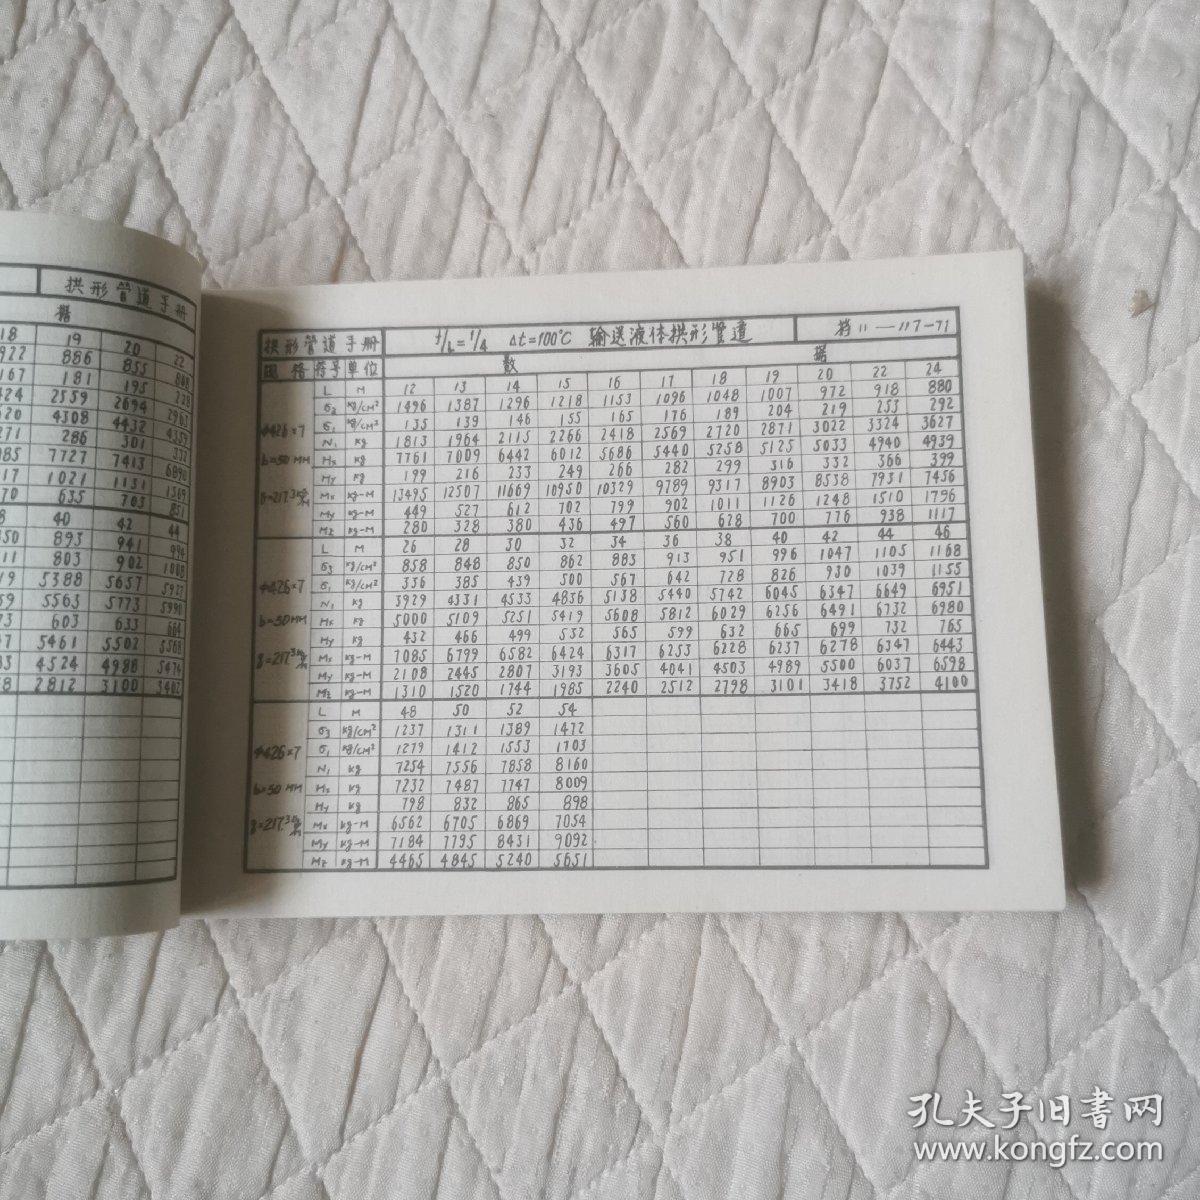 拱形管道手册
据
18 19 20 22
922 886 855 808
167 181 195 228
424 2559 2694 2963
620 4308 4432 4359
271 286 301 332
085 7727 7413 6890
17 1021 1131 1369
70 635 703 851
8 40 42 44
850 893 941 994
11 803 902 1008
19 5388 5657 5927
59 5563 5773 5990
73 603 633 664
7 5461 5502 5568
33 4524 4988 5474
8 2812 3100 3402
拱形管道手册 f/L=1/4 Δt=100°C 输送液体拱形管道 拱11—117-71
规格 符号 单位 数 据
L M 12 13 14 15 16 17 18 19 20 22 24
σ3 kg/cm² 1496 1387 1296 1218 1153 1096 1048 1007 972 918 880
σ1 kg/cm² 135 139 146 155 165 176 189 204 219 253 292
φ426×7 N1 kg 1813 1964 2115 2266 2418 2569 2720 2871 3022 3324 3627
b=50MM Hx kg 7761 7009 6442 6012 5686 5440 5258 5125 5033 4940 4939
Hy kg 199 216 233 249 266 282 299 316 332 366 399
g=217.3kg/M Mx kg-M 13495 12507 11669 10950 10329 9789 9317 8903 8538 7931 7456
My kg-M 449 527 612 702 799 902 1011 1126 1248 1510 1796
Mz kg-M 280 328 380 436 497 560 628 700 776 938 1117
L M 26 28 30 32 34 36 38 40 42 44 46
σ3 kg/cm² 858 848 850 862 883 913 951 996 1047 1105 1168
φ426×7 σ1 kg/cm² 336 385 439 500 567 642 728 826 930 1039 1155
N1 kg 3929 4331 4533 4836 5138 5440 5742 6045 6347 6649 6951
b=50MM Hx kg 5000 5109 5251 5419 5608 5812 6029 6256 6491 6732 6980
Hy kg 432 466 499 532 565 599 632 665 699 732 765
g=217.3kg/M Mx kg-M 7085 6799 6582 6424 6317 6253 6228 6237 6278 6347 6443
My kg-M 2108 2445 2807 3193 3605 4041 4503 4989 5500 6037 6598
Mz kg-M 1310 1520 1744 1985 2240 2512 2798 3101 3418 3752 4100
L M 48 50 52 54
σ3 kg/cm² 1237 1311 1389 1472
φ426×7 σ1 kg/cm² 1279 1412 1553 1703
N1 kg 7254 7556 7858 8160
b=50MM Hx kg 7232 7487 7747 8009
Hy kg 798 832 865 898
g=217.3kg/M Mx kg-M 6562 6705 6869 7054
My kg-M 7184 7795 8431 9092
Mz kg-M 4465 4845 5240 5651
孔夫子旧书网
www.kongfz.com